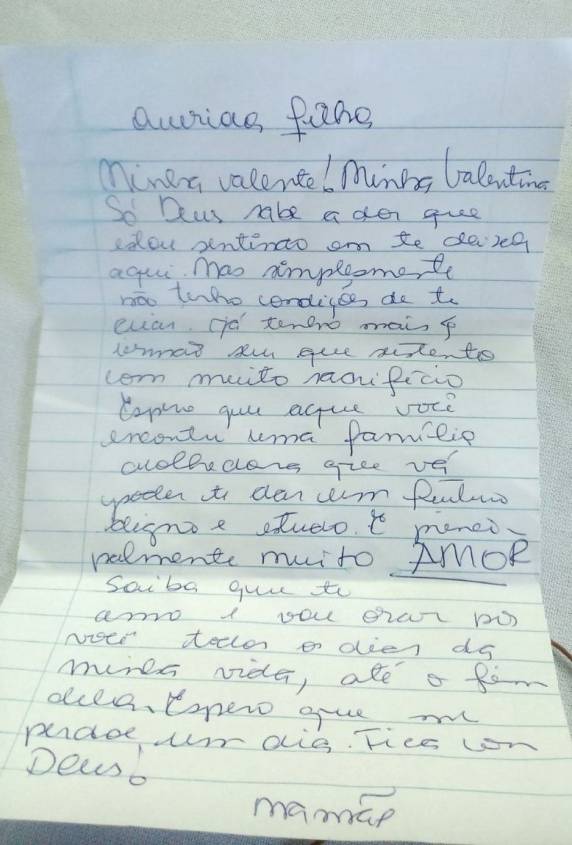 Querida filha
Minha valente! Minha Valentina
Só Deus sabe a dor que
estou sentindo em te deixar
aqui. Mas simplesmente
não tenho condições de te
criar. Já tenho mais 4
irmão seu que sustento
com muito sacrifício
Espero que aqui você
encontre uma família
acolhedora que vá
poder te dar um futuro
digno e estudo. E princi-
palmente muito AMOR
Saiba que te
amo e vou orar por
você todos os dias da
minha vida, até o fim
dela. Espero que me
perdoe um dia. Fica com
Deus!
mamãe